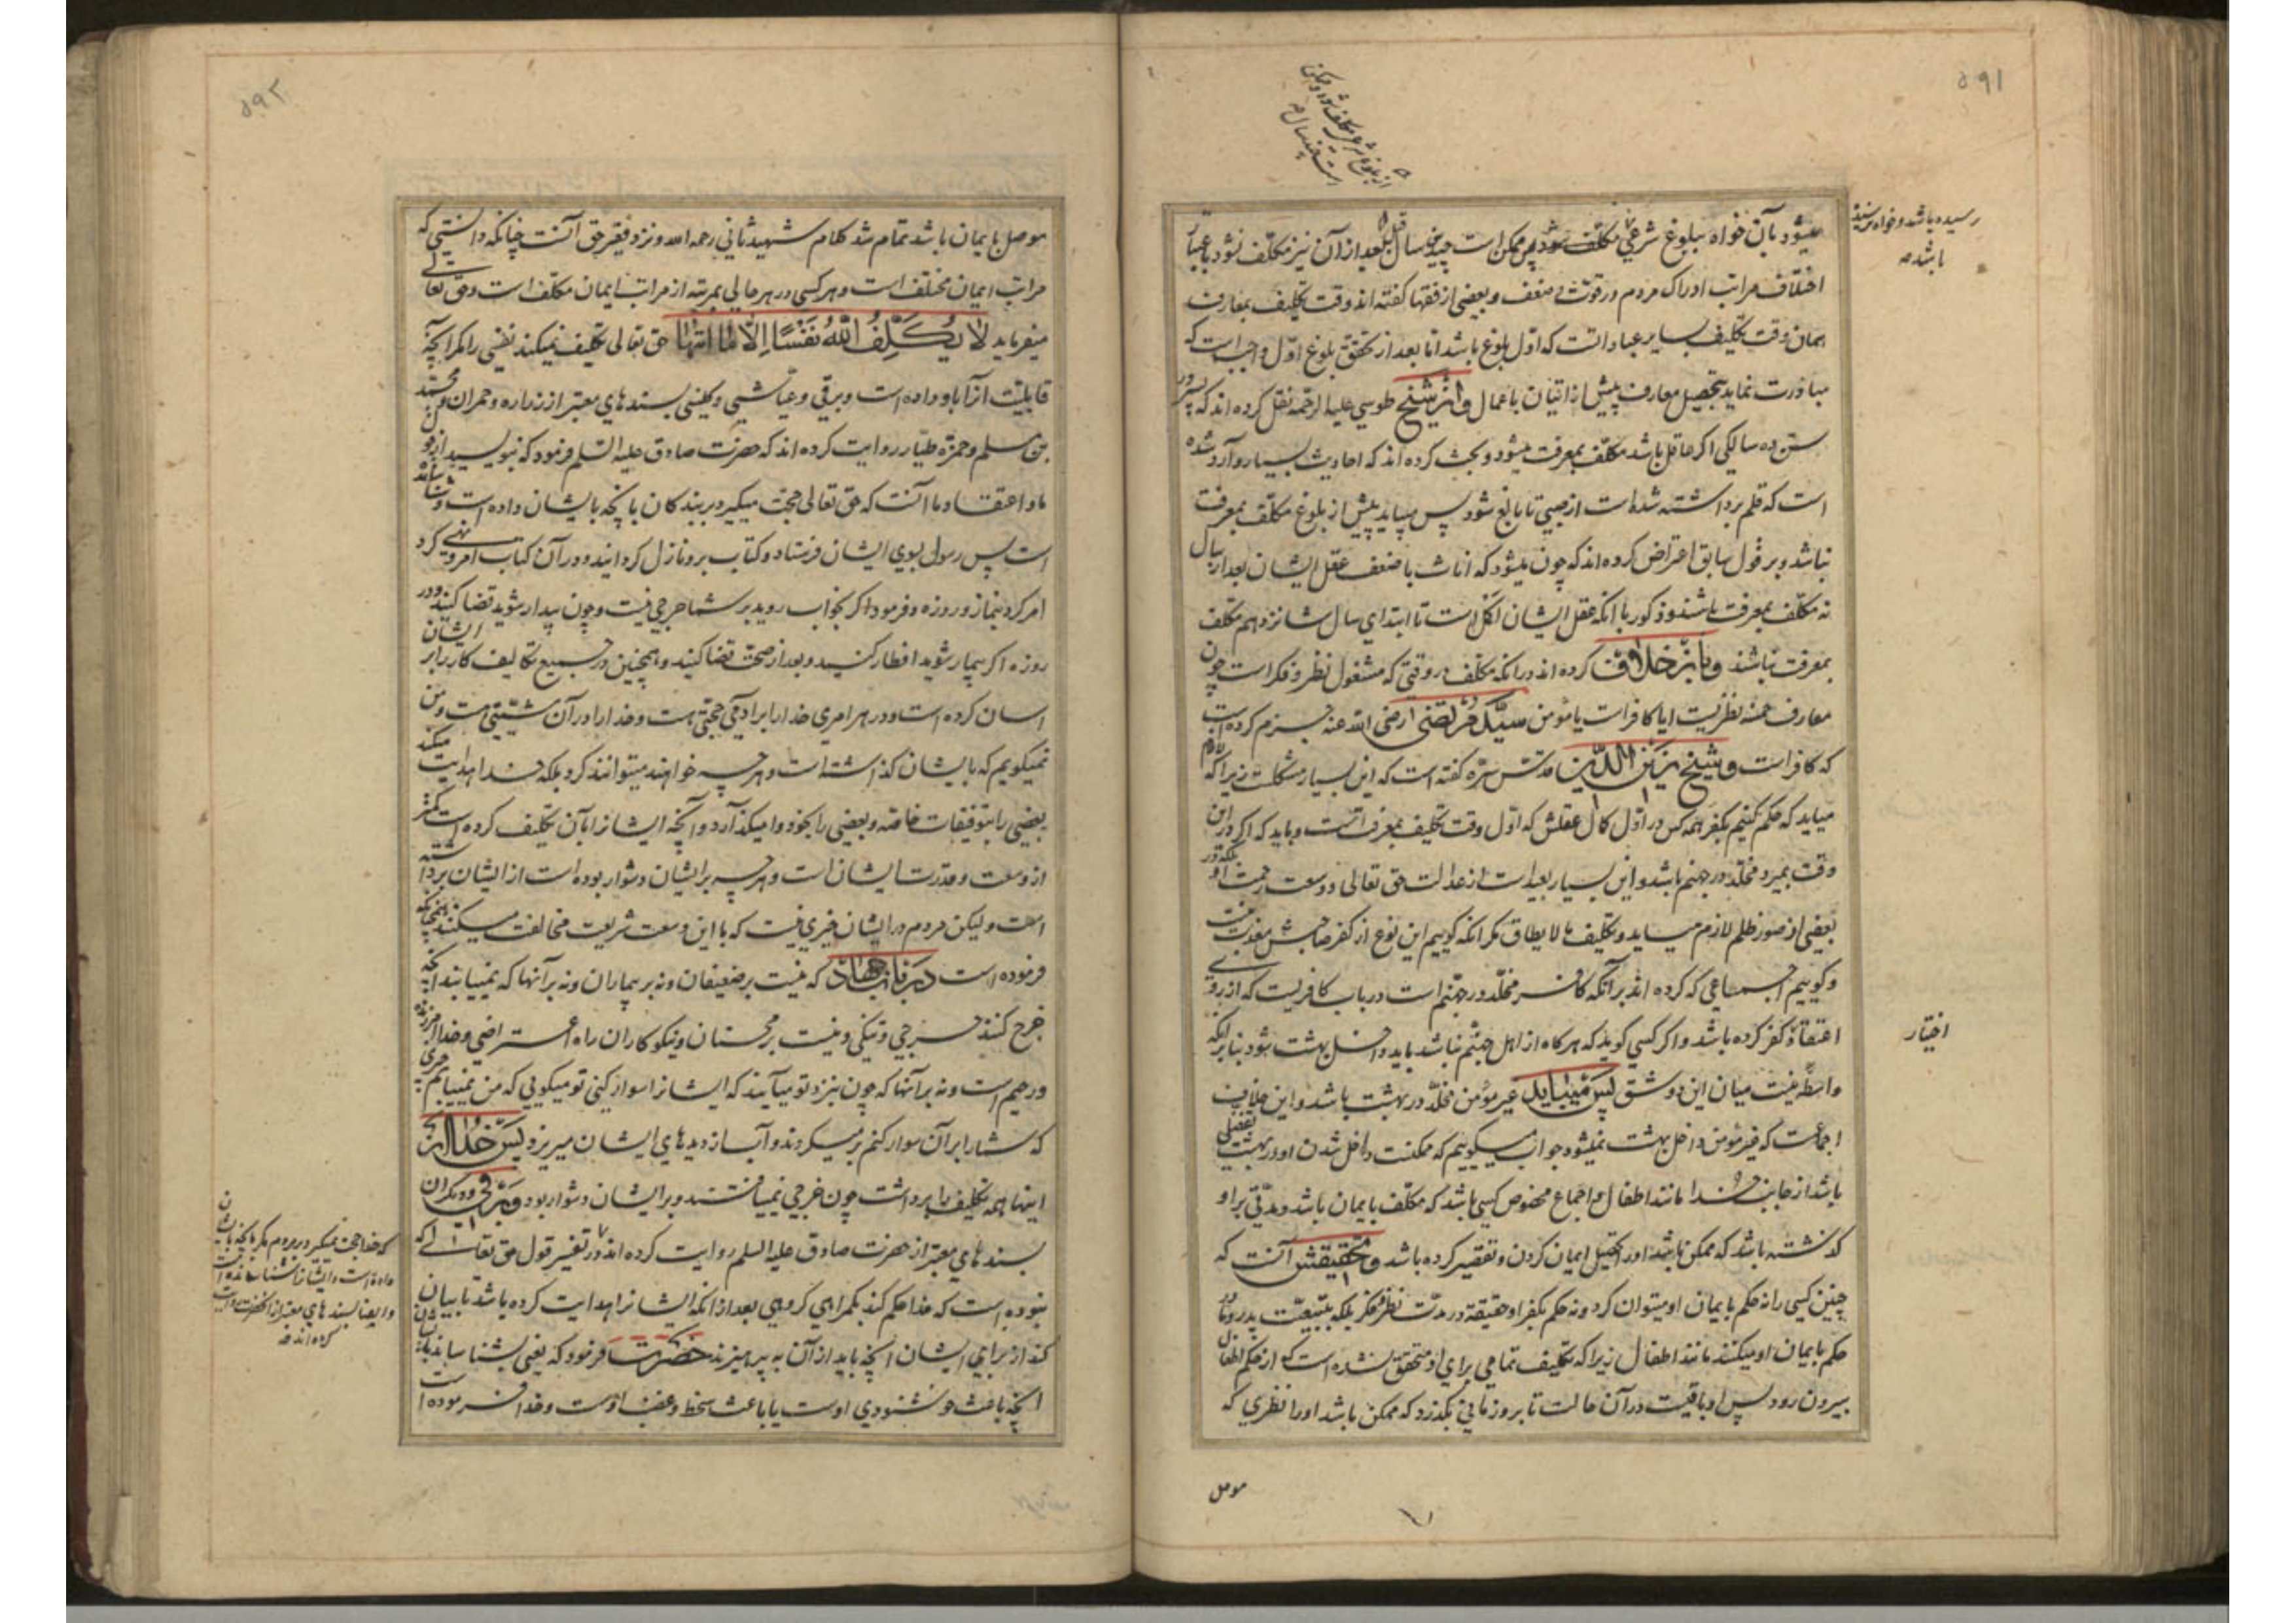 ۵۹۱
رسیده باشد و خواه نرسیده
باشد صه
از بلوغ شرعی مکلف شود و ممکن
است چند سال صه
میشود بآن خواه ببلوغ شرعی مکلف شود پس ممکن است چندین سال قبل بعد از آن نیز مکلف نشود باعتبار
اختلاف مراتب ادراک مردم در قوت و ضعف و بعضی از فقها گفته اند وقت تکلیف بمعارف
همان وقت تکلیف بسایر عباداتست که اول بلوغ باشد اما بعد از تحقق بلوغ اول واجب است که
مبادرت نماید بتحصیل معارف پیش از اتیان باعمال و از شیخ طوسی علیه الرحمه نقل کرده اند که پسر در
سن ده سالگی اگر عاقل باشد مکلف بمعرفت میشود و بحث کرده اند که احادیث بسیار وارد شده
است که قلم برداشته شده است از صبی تا بالغ شود پس میباید پیش از بلوغ مکلف بمعرفت
نباشد و بر قول سابق اعتراض کرده اند که چون میشود که اناث با ضعف عقل ایشان بعد از سال
نه مکلف بمعرفت باشند و ذکور با آنکه عقل ایشان اکمل است تا ابتدای سال شانزدهم مکلف
بمعرفت نباشند و باز خلاف کرده اند در آنکه مکلف در وقتی که مشغول نظر و فکر است چون
معارف خمسه نظریست آیا کافر است یا مؤمن سید مرتضی رضی الله عنه جزم کرده است
که کافر است و شیخ زین الدین قدس سره گفته است که این بسیار مشکلست زیرا که لازم
میاید که حکم کنیم بکفر همه کس در اول کمال عقلش که اول وقت تکلیف بمعرفت است و باید که اگر در آن
وقت بمیرد مخلد در جهنم باشد و این بسیار بعید است از عدالت حق تعالی و وسعت رحمت او بلکه در
بعضی از صور ظلم لازم میاید و تکلیف ما لا یطاق مگر آنکه گوییم این نوع از کفر صاحبش معذب نیست
و گوییم اجماعی که کرده اند بر آنکه کافر مخلد در جهنم است در باب کافریست که از روی
اختیار
اعتقاد کفر کرده باشد و اگر کسی گوید که هرگاه از اهل جهنم نباشد باید داخل بهشت شود بنابر آنکه
واسطه نیست میان این دو شق پس میباید غیر مؤمن مخلد در بهشت باشد و این خلاف
اجماعست که غیر مؤمن داخل بهشت نمیشود جواب میگوییم که ممکنست داخل شدن او در بهشت تفضلی
باشد از جانب خدا مانند اطفال و اجماع مخصوص کسی باشد که مکلف بایمان باشد و مدتی بر او
گذشته باشد که ممکن باشد او را تحصیل ایمان کردن و تقصیر کرده باشد و تحقیقش آنست که
چنین کسی را نه حکم بایمان او میتوان کرد و نه حکم بکفر او حقیقة در مدت نظر و فکر بلکه بتبعیت پدر و مادر
حکم بایمان او میکنند مانند اطفال زیرا که تکلیف تمامی برای او متحقق نشده است که از حکم اطفال
بیرون رود پس او باقیست در آن حالت تا بر او زمانی بگذرد که ممکن باشد او را نظری که
موصل
۵۹۲
موصل بایمان باشد تمام شد کلام شهید ثانی رحمه الله و نزد فقیر حق آنست چنانکه دانستی که
مراتب ایمان مختلف است و هر کسی در هر حالی بمرتبه از مراتب ایمان مکلف است و حق تعالی
میفرماید لا یکلف الله نفسا الا ما اتیها حق تعالی تکلیف نمیکند نفسی را مگر آنچه
قابلیت آنرا باو داده است و برقی و عیاشی و کلینی بسندهای معتبر از زراره و حمران و محمد
بن مسلم و حمزه طیار روایت کرده اند که حضرت صادق علیه السلم فرمود که بنویسید از قول
ما و اعتقاد ما آنست که حق تعالی حجت میگیرد بر بندگان بآنچه بایشان داده است و شناسانده
است پس رسول بسوی ایشان فرستاد و کتاب برو نازل گردانید و در آن کتاب امر و نهی کرد
امر کرد بنماز و روزه و فرمود اگر بخواب روید بر شما حرجی نیست و چون بیدار شوید قضا کنید و در
روزه اگر بیمار شوید افطار کنید و بعد از صحت قضا کنید و همچنین در جمیع تکالیف کار را بر ایشان
آسان کرده است و در هر امری خدا را بر آدمی حجتی هست و خدا را در آن مشیتی هست و من
نمیگویم که بایشان گذاشته است و هر چه خواهند میتوانند کرد بلکه خدا هدایت میکند
بعضی را بتوفیقات خاصه و بعضی را بخود وامیگذارد و آنچه ایشانرا بآن تکلیف کرده است کمتر
از وسعت و قدرت ایشان است و هر چه بر ایشان دشوار بوده است از ایشان برداشته
است و لیکن مردم در ایشان خیری نیست که با این وسعت شریعت مخالفت میکنند همچنانکه
فرموده است در باب جهاد که نیست بر ضعیفان و نه بر بیماران و نه بر آنها که نمییابند آنچه
خرج کنند حرجی و تنگی و نیست بر محسنان و نیکوکاران راه اعتراضی و خدا آمرزنده
و رحیم است و نه بر آنها که چون بنزد تو میآیند که ایشانرا سوار کنی تو میگویی که من نمییابم چیزی
که شما را بر آن سوار کنم بر میگردند و آب از دیدهای ایشان میریزد پس خدا از
اینها همه تکلیف را برداشت چون خرجی نمییافتند و بر ایشان دشوار بود و برقی و دیگران
بسندهای معتبر از حضرت صادق علیه السلم روایت کرده اند در تفسیر قول حق تعالی که
نبوده است که خدا حکم کند بگمراهی گروهی بعد از آنکه ایشانرا هدایت کرده باشد تا بیان
کند از برای ایشان آنچه باید از آن به پرهیزند حضرت فرمود که یعنی بشناساند بایشان
آنچه باعث خوشنودی اوست یا باعث سخط و غضب اوست و خدا فرموده است
که خدا حجت نمیگیرد بر مردم مگر بآنچه بایشان
داده است و ایشانرا شناسانده است
و ایضا بسندهای معتبر از آنحضرت روایت
کرده اند صه